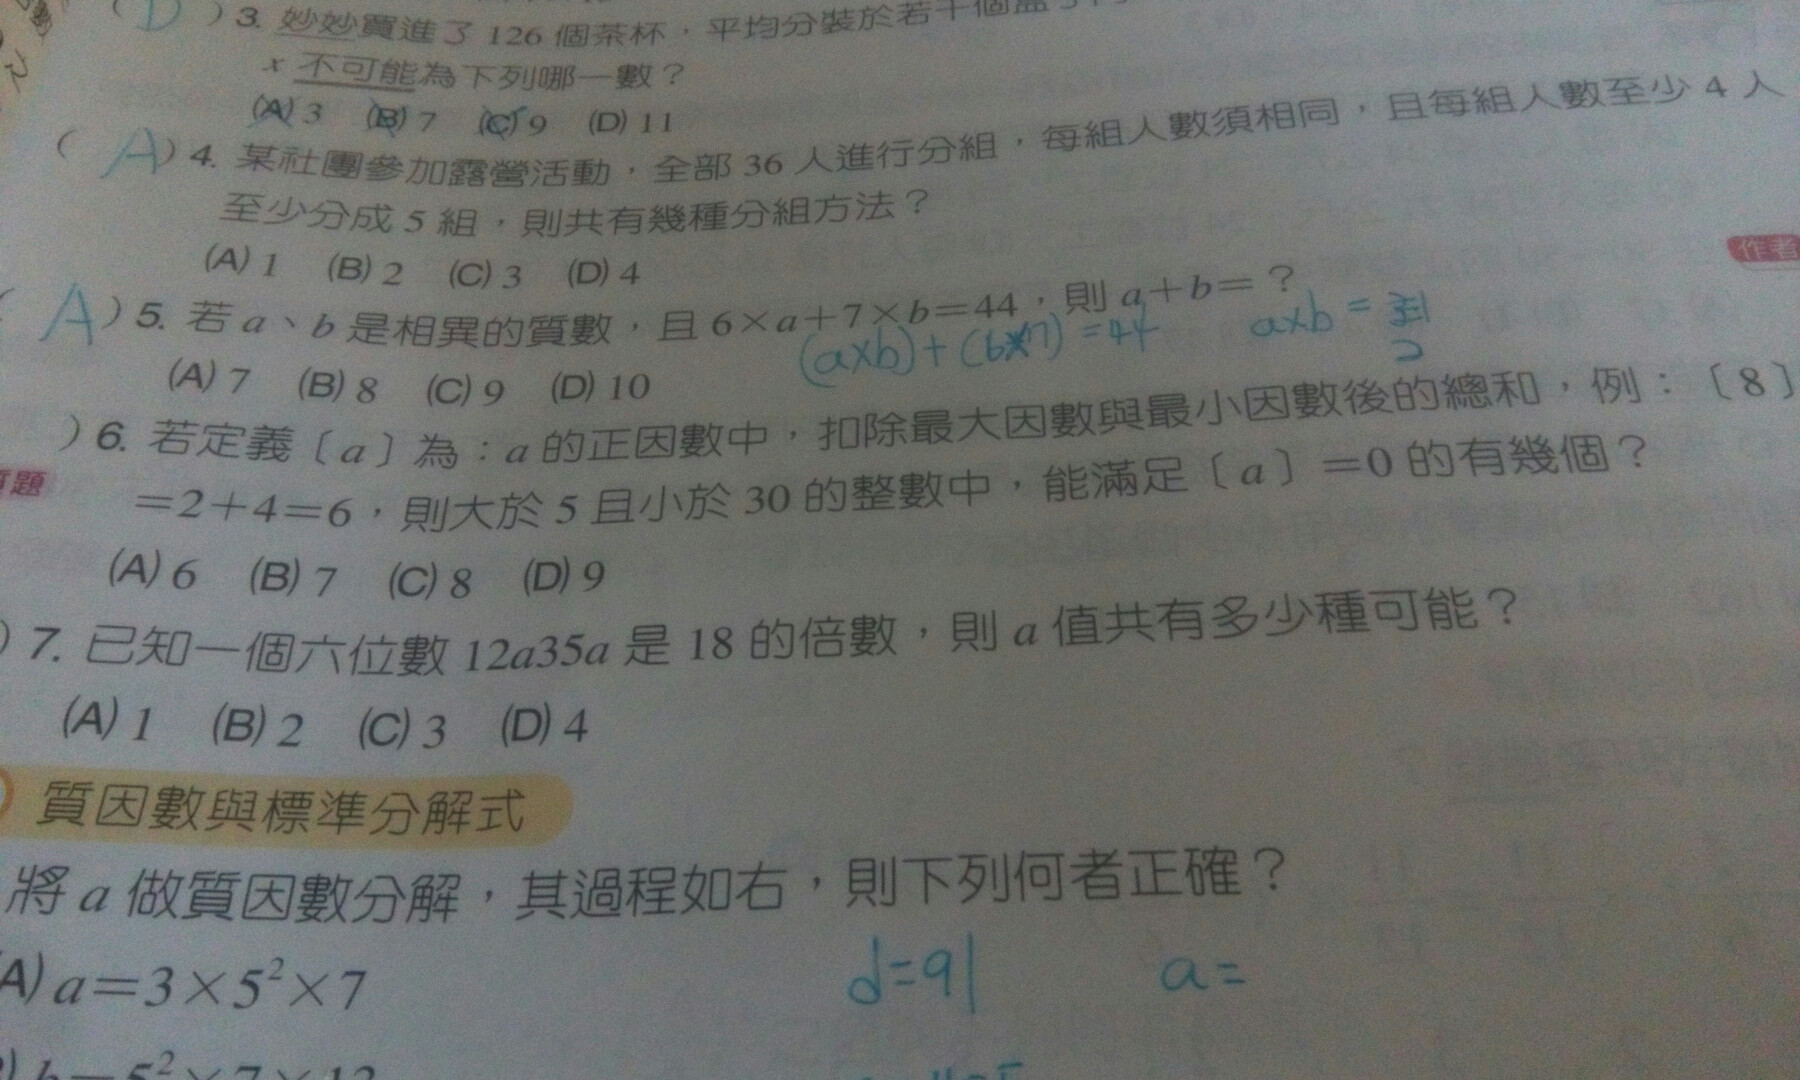 ( D ) 3. 妙妙買進了 126 個茶杯，平均分裝於若干個盒
x 不可能為下列哪一數？
(A) 3 (B) 7 (C) 9 (D) 11
( A ) 4. 某社團參加露營活動，全部 36 人進行分組，每組人數須相同，且每組人數至少 4 人
至少分成 5 組，則共有幾種分組方法？
(A) 1 (B) 2 (C) 3 (D) 4
作者
( A ) 5. 若 a、b 是相異的質數，且 6×a+7×b=44，則 a+b=？
(a×b)+(6×7)=44 a×b=
2
(A) 7 (B) 8 (C) 9 (D) 10
) 6. 若定義〔a〕為：a 的正因數中，扣除最大因數與最小因數後的總和，例：〔8〕
題
=2+4=6，則大於 5 且小於 30 的整數中，能滿足〔a〕=0 的有幾個？
(A) 6 (B) 7 (C) 8 (D) 9
) 7. 已知一個六位數 12a35a 是 18 的倍數，則 a 值共有多少種可能？
(A) 1 (B) 2 (C) 3 (D) 4
質因數與標準分解式
將 a 做質因數分解，其過程如右，則下列何者正確？
(A) a=3×5²×7
d=91 a=
b=5²×7×13